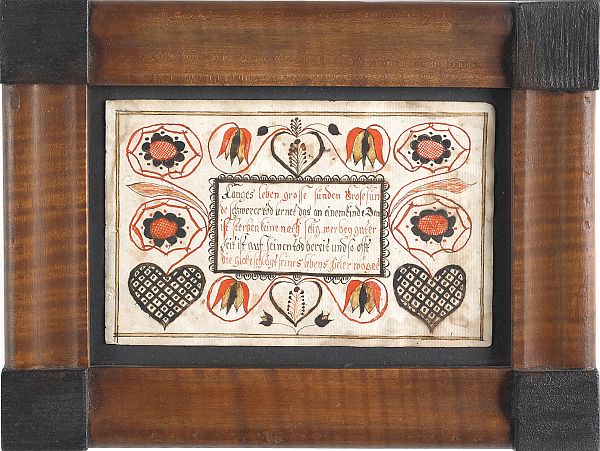 Langes leben grosse sünden Grose sün
de schwerer tod lernet das an einem kinde Dan
ist sterben keine noth selig wer bey guter
Zeit ist auf seinen tod bereit und so offt
die glock schlägt seines lebens